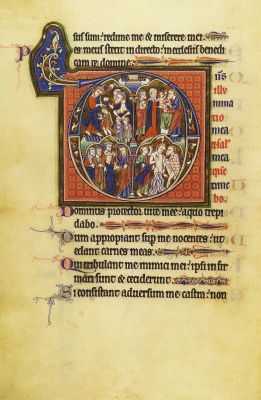 ssus sum : redime me & miserere mei.
Pes meus stetit in directo : in ecclesiis benedi
cam te domine.
D
n̄s
illu
mina
tio
mea
& salus
mea
que
time
bo.
Dominus protector vite mee : a quo trepi
dabo.
Dum appropiant sup me nocentes : ut
edant carnes meas.
Qui tribulant me inimici mei : ipsi infir
mati sunt & ceciderunt.
Si consistant adversum me castra : non